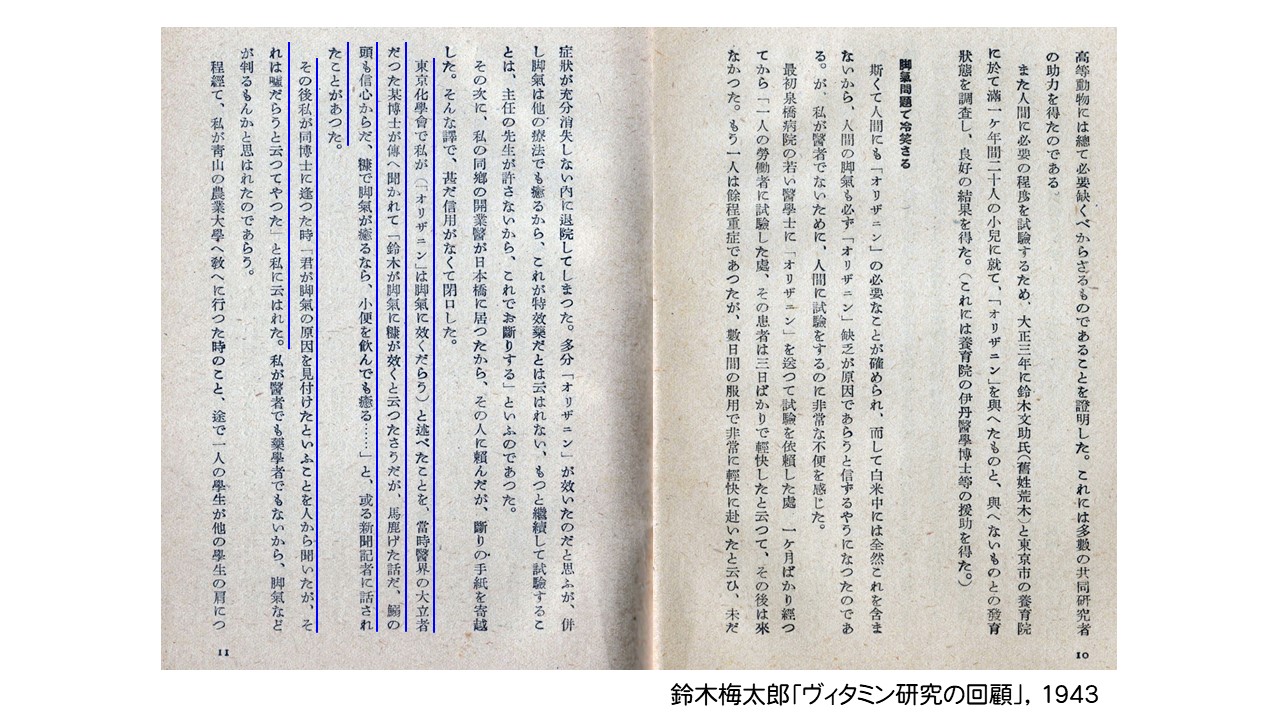 高等動物には總て必要缺くべからざるものであることを證明した。これには多數の共同研究者
の助力を得たのである
また人間に必要の程度を試驗するため、大正三年に鈴木文助氏(舊姓荒木)と東京市の養育院
に於て滿一ヶ年間二十人の小兒に就て、「オリザニン」を與へたものと、與へないものとの發育
狀態を調査し、良好の結果を得た。(これには養育院の伊丹醫學博士等の援助を得た。)
脚氣問題で冷笑さる
斯くて人間にも「オリザニン」の必要なことが確められ、而して白米中には全然これを含ま
ないから、人間の脚氣も必ず「オリザニン」缺乏が原因であらうと信ずるやうになつたのであ
る。が、私が醫者でないために、人間に試驗をするのに非常な不便を感じた。
最初泉橋病院の若い醫學士に「オリザニン」を送つて試驗を依賴した處 一ヶ月ばかり經つ
てから「一人の勞働者に試驗した處、その患者は三日ばかりで輕快したと云つて、その後は來
なかつた。もう一人は餘程重症であつたが、數日間の服用で非常に輕快に赴いたと云ひ、未だ
10
症狀が充分消失しない内に退院してしまつた。多分「オリザニン」が效いたのだと思ふが、併
し脚氣は他の療法でも癒るから、これが特效藥だとは云はれない、もつと繼續して試驗するこ
とは、主任の先生が許さないから、これでお斷りする」といふのであつた。
その次に、私の同鄕の開業醫が日本橋に居つたから、その人に賴んだが、斷りの手紙を寄越
した。そんな譯で、甚だ信用がなくて閉口した。
東京化學會で私が(「オリザニン」は脚氣に效くだらう)と述べたことを、當時醫界の大立者
だつた某博士が傳へ聞かれて「鈴木が脚氣に糠が效くと云つたさうだが、馬鹿げた話だ、鰯の
頭も信心からだ、糠で脚氣が癒るなら、小便を飮んでも癒る……」と、或る新聞記者に話され
たことがあつた。
その後私が同博士に逢つた時「君が脚氣の原因を見付けたといふことを人から聞いたが、そ
れは嘘だらうと云つてやつた」と私に云はれた。私が醫者でも藥學者でもないから、脚氣など
が判るもんかと思はれたのであらう。
程經て、私が靑山の農業大學へ敎へに行つた時のこと、途で一人の學生が他の學生の肩につ
11
鈴木梅太郎「ヴィタミン研究の回顧」, 1943